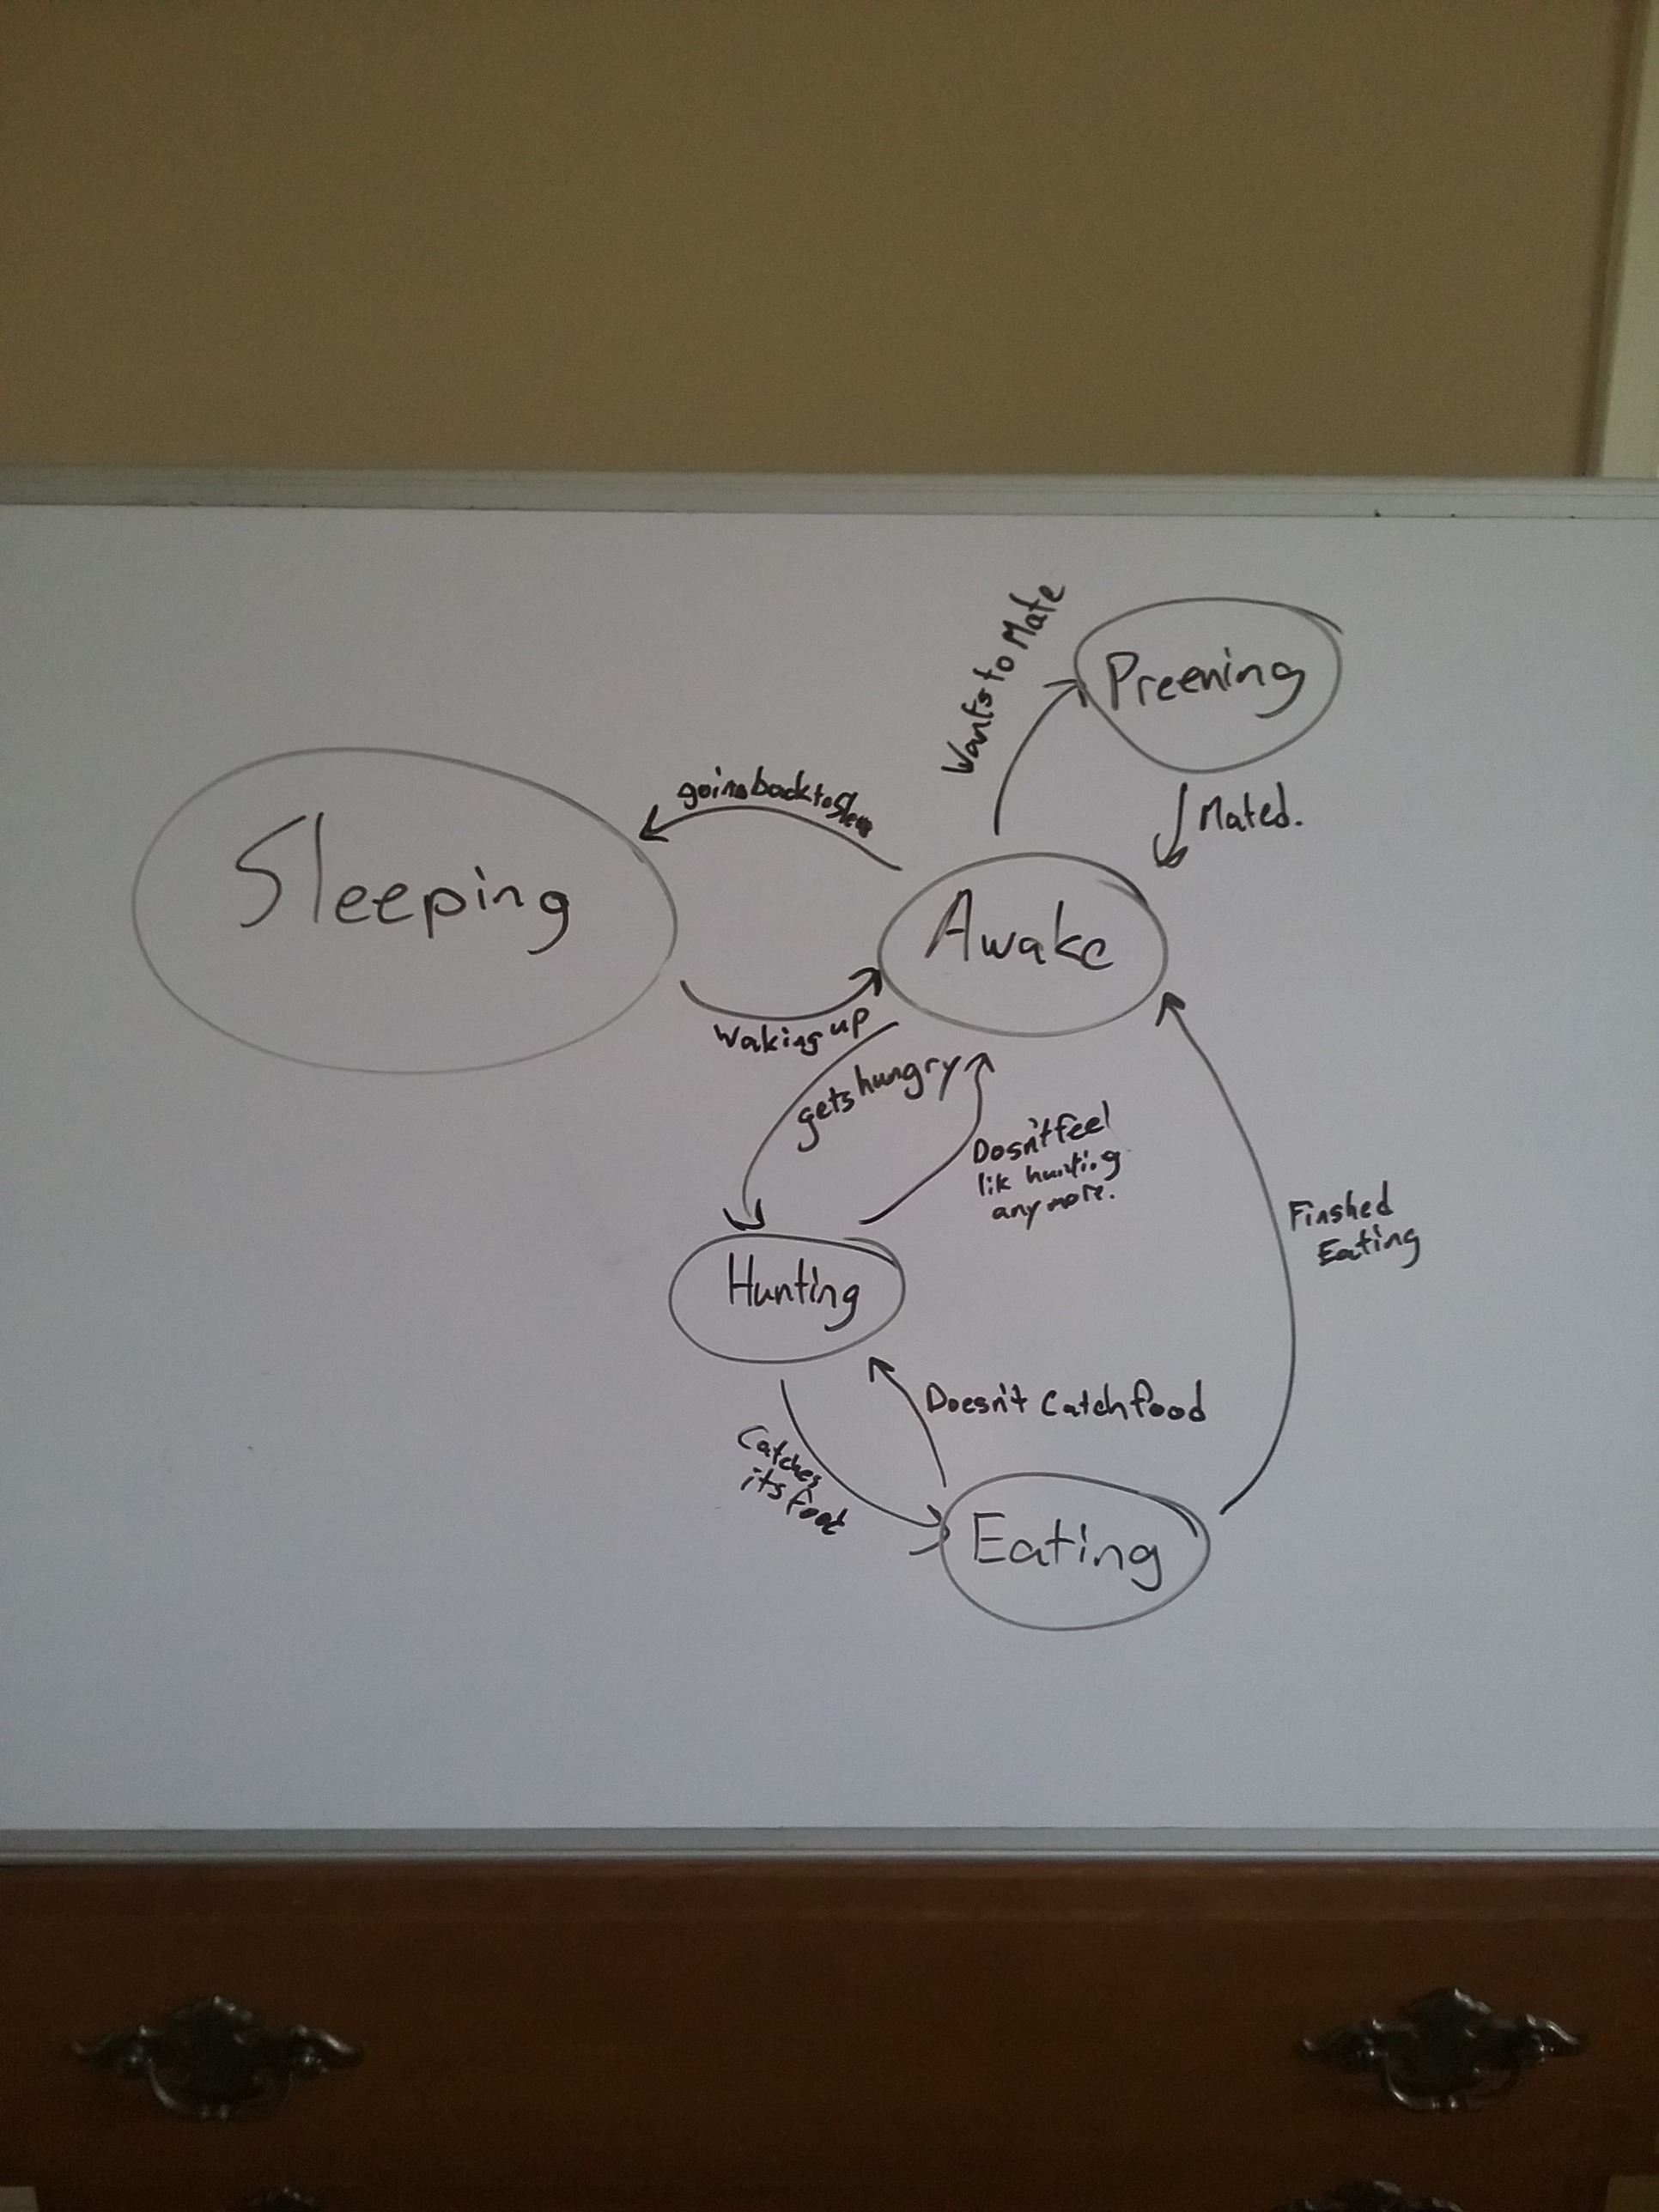 Wants to Mate
Preening
Mated.
going back to Sleep
Sleeping
Awake
Waking up
gets hungry
Dosn't feel
lik hunting
any more.
Finshed
Eating
Hunting
Doesn't Catch food
Catches
its food
Eating